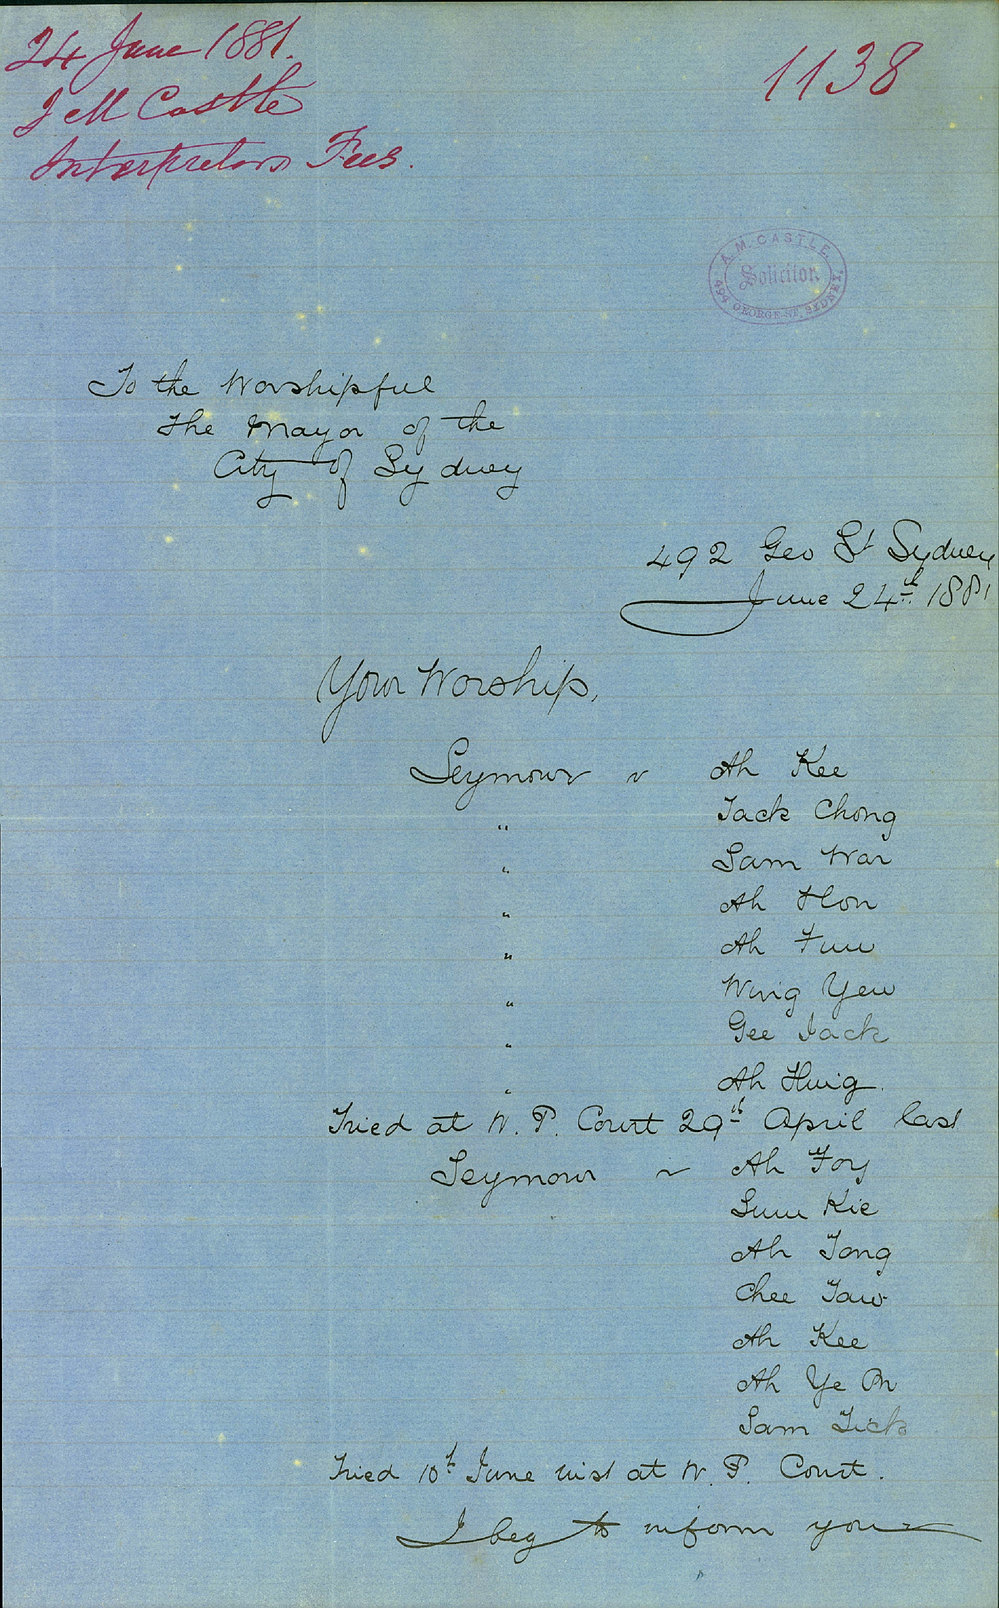 24 June 1881.
J M Castle
Interpretors Fees.
1138
A. M. CASTLE.
Solicitor.
494 GEORGE ST, SYDNEY.
To the Worshipful
The Mayor of the
City of Sydney
492 Geo St Sydney
June 24th 1881
Your Worship,
Seymour v Ah Kee
" Jack Chong
" Sam War
" Ah Hon
" Ah Fun
" Wing Yew
" Gee Jack
" Ah Hing.
Tried at W. P. Court 29th April last
Seymour v Ah Foy
Sum Kie
Ah Tong
Chee Taw
Ah Kee
Ah Ye On
Sam Tick
Tried 10th June inst at W. P. Court.
I beg to inform you